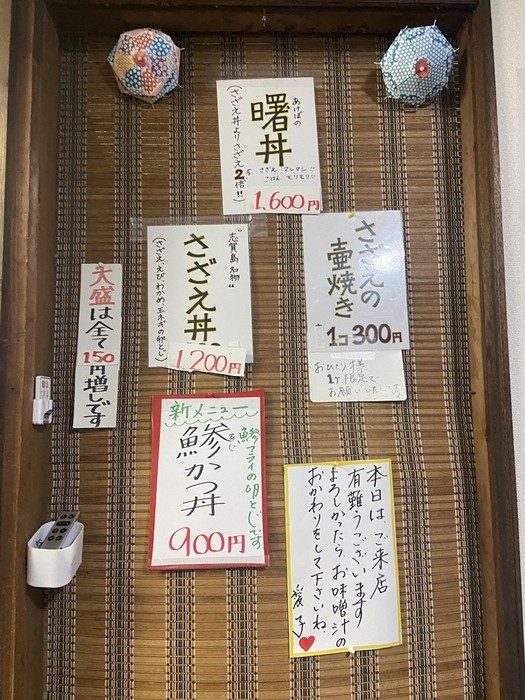 あけぼの
曙丼
(さざえ丼よりさざえ2.5倍!!)
さざえ マシマシ!!
ごはん モリモリ!!
1,600円
"志賀島名物"
さざえ丼
(さざえ、えび、わかめ、玉ネギの卵とじ)
1200円
さざえの
壷焼き
1コ300円
おひとり様
1ケ限定で
お願いいたします
大盛は全て150円増しです
新メニュー
鯵フライの卵とじです
鯵かつ丼
あじ
900円
本日はご来店
有難うございます
よろしかったらお味噌汁の
おかわりをして下さいね
愛子